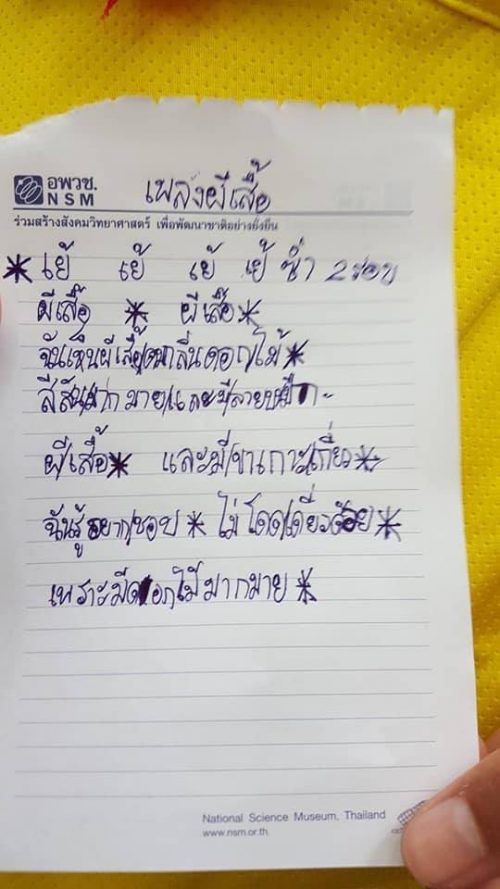 อพวช.
NSM
เพลงผีเสื้อ
ร่วมสร้างสังคมวิทยาศาสตร์ เพื่อพัฒนาชาติอย่างยั่งยืน
* เย้ เย้ เย้ เย้ ซ้ำ 2 รอบ
ผีเสื้อ * ผีเสื้อ *
ฉันเห็นผีเสื้อดมกลิ่นดอกไม้ *
สีสันมากมายและมีลายบนปีก
ผีเสื้อ * และมีขาเกาะเกี่ยว *
ฉันรู้อยากชอบ * ไม่โดดเดี่ยวด้วย *
เพราะมีดอกไม้มากมาย *
National Science Museum, Thailand
www.nsm.or.th